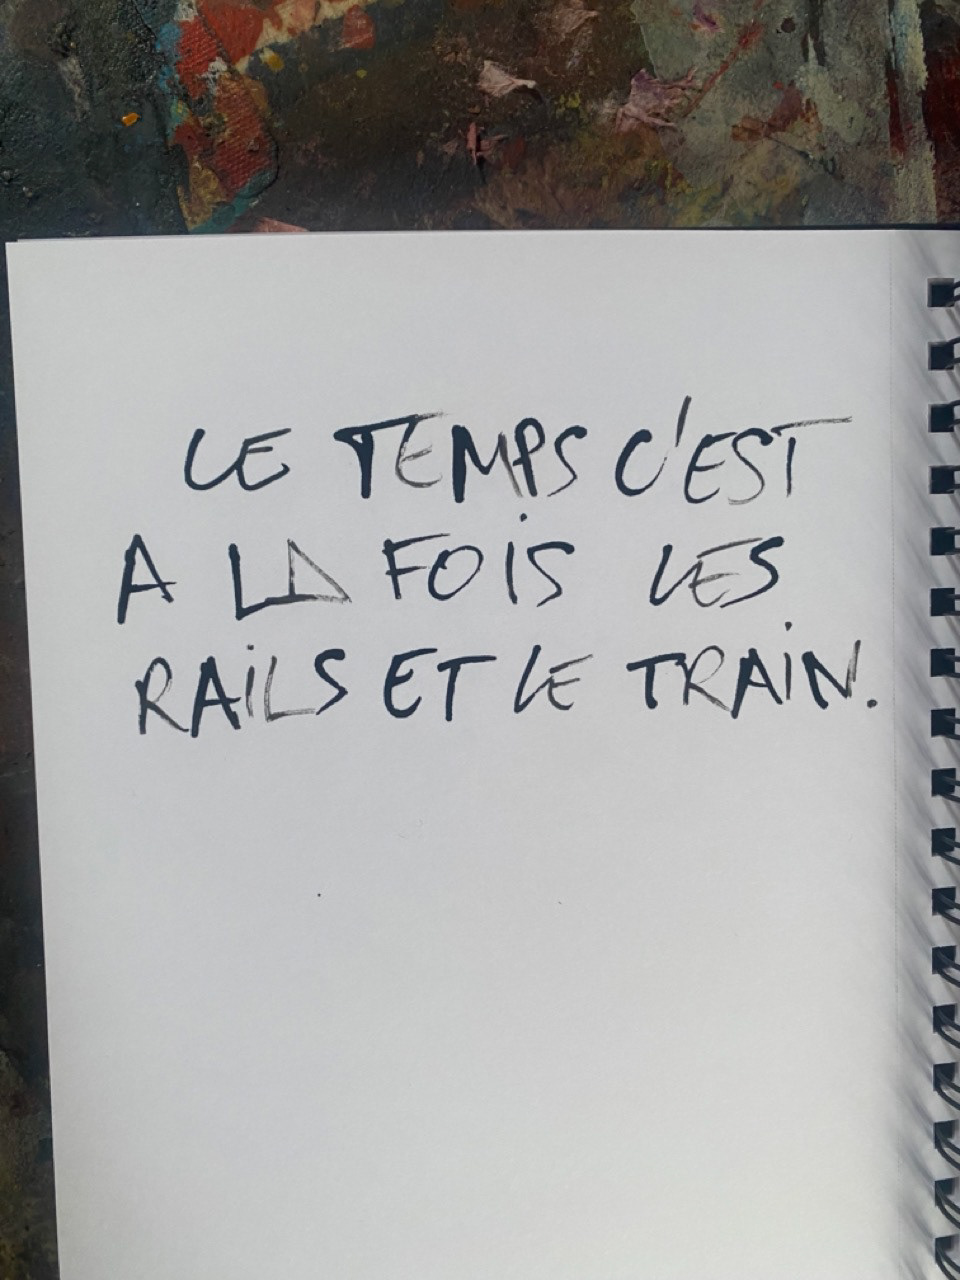 LE TEMPS C'EST
A LA FOIS LES
RAiLS ET LE TRAiN.